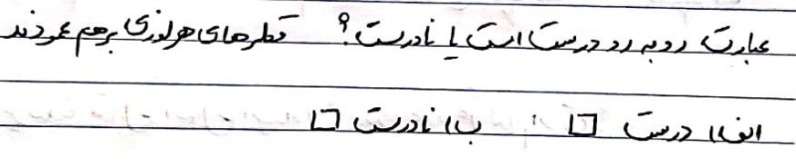 عبارت رو به رو درست است یا نادرست؟ قطرهای هر لوزی برهم عمودند
الف) درست □ ب) نادرست □